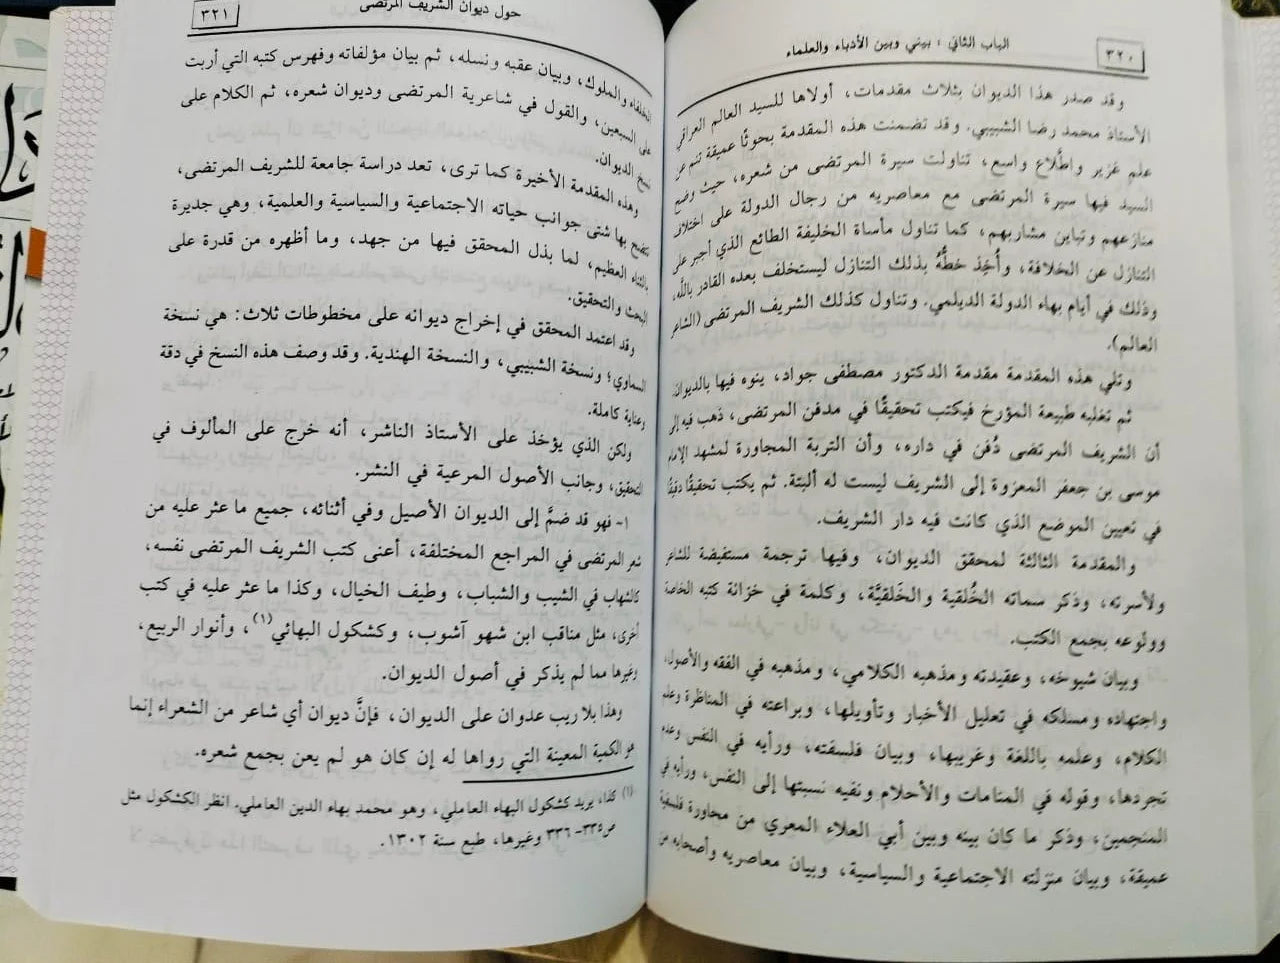 ٣٢٠
الباب الثاني : بيني وبين الأدباء والعلماء
وقد صدر هذا الديوان بثلاث مقدمات، أولاها للسيد العالم العراقي
الأستاذ محمد رضا الشبيبي. وقد تضمنت هذه المقدمة بحوثًا عميقة تنم عن
علم غزير واطّلاع واسع، تناولت سيرة المرتضى من شعره، حيث وضع
السيد فيها سيرة المرتضى مع معاصريه من رجال الدولة على اختلاف
منازعهم وتباين مشاربهم، كما تناول مأساة الخليفة الطائع الذي أجبر على
التنازل عن الخلافة، وأُخِذ خطُّهُ بذلك التنازل ليستخلف بعده القادر بالله،
وذلك في أيام بهاء الدولة الديلمي. وتناول كذلك الشريف المرتضى (الشاعر
العالم).
وتلي هذه المقدمة مقدمة الدكتور مصطفى جواد، ينوه فيها بالديوان.
ثم تغلبه طبيعة المؤرخ فيكتب تحقيقًا في مدفن المرتضى، ذهب فيه إلى
أن الشريف المرتضى دُفن في داره، وأن التربة المجاورة لمشهد الإمام
موسى بن جعفر المعزوة إلى الشريف ليست له ألبتة. ثم يكتب تحقيقًا دقيقًا
في تعيين الموضع الذي كانت فيه دار الشريف.
والمقدمة الثالثة لمحقق الديوان، وفيها ترجمة مستفيضة للشاعر
ولأسرته، وذكر سماته الخُلقية والخَلقيَّة، وكلمة في خزانة كتبه الخاصة
وولوعه بجمع الكتب.
وبيان شيوخه، وعقيدته ومذهبه الكلامي، ومذهبه في الفقه والأصول،
واجتهاده ومسلكه في تعليل الأخبار وتأويلها، وبراعته في المناظرة وعلم
الكلام، وعلمه باللغة وغريبها، وبيان فلسفته، ورأيه في النفس وعدم
تجردها، وقوله في المنامات والأحلام ونفيه نسبتها إلى النفس، ورأيه في
المنجمين، وذكر ما كان بينه وبين أبي العلاء المعري من محاورة فلسفية
عميقة، وبيان منزلته الاجتماعية والسياسية، وبيان معاصريه وأصحابه من
حول ديوان الشريف المرتضى
٣٢١
الخلفاء والملوك، وبيان عقبه ونسله، ثم بيان مؤلفاته وفهرس كتبه التي أربت
على السبعين، والقول في شاعرية المرتضى وديوان شعره، ثم الكلام على
نسخ الديوان.
وهذه المقدمة الأخيرة كما ترى، تعد دراسة جامعة للشريف المرتضى،
بها شتى جوانب حياته الاجتماعية والسياسية والعلمية، وهي جديرة
بالثناء العظيم، لما بذل المحقق فيها من جهد، وما أظهره من قدرة على
البحث والتحقيق.
وقد اعتمد المحقق في إخراج ديوانه على مخطوطات ثلاث: هي نسخة
السماوي؛ ونسخة الشبيبي، والنسخة الهندية. وقد وصف هذه النسخ في دقة
وعناية كاملة.
ولكن الذي يؤخذ على الأستاذ الناشر، أنه خرج على المألوف في
التحقيق، وجانب الأصول المرعية في النشر.
١- فهو قد ضمَّ إلى الديوان الأصيل وفي أثنائه، جميع ما عثر عليه من
شعر المرتضى في المراجع المختلفة، أعنى كتب الشريف المرتضى نفسه،
كالشهاب في الشيب والشباب، وطيف الخيال، وكذا ما عثر عليه في كتب
أخرى، مثل مناقب ابن شهو آشوب، وكشكول البهائي(١)، وأنوار الربيع،
وغيرها مما لم يذكر في أصول الديوان.
وهذا بلا ريب عدوان على الديوان، فإنَّ ديوان أي شاعر من الشعراء إنما
هو الكمية المعينة التي رواها له إن كان هو لم يعن بجمع شعره.
(١) كذا، يريد كشكول البهاء العاملي، وهو محمد بهاء الدين العاملي. انظر الكشكول مثل
ص٣٣٥- ٣٣٦ وغيرها، طبع سنة ١٣٠٢.